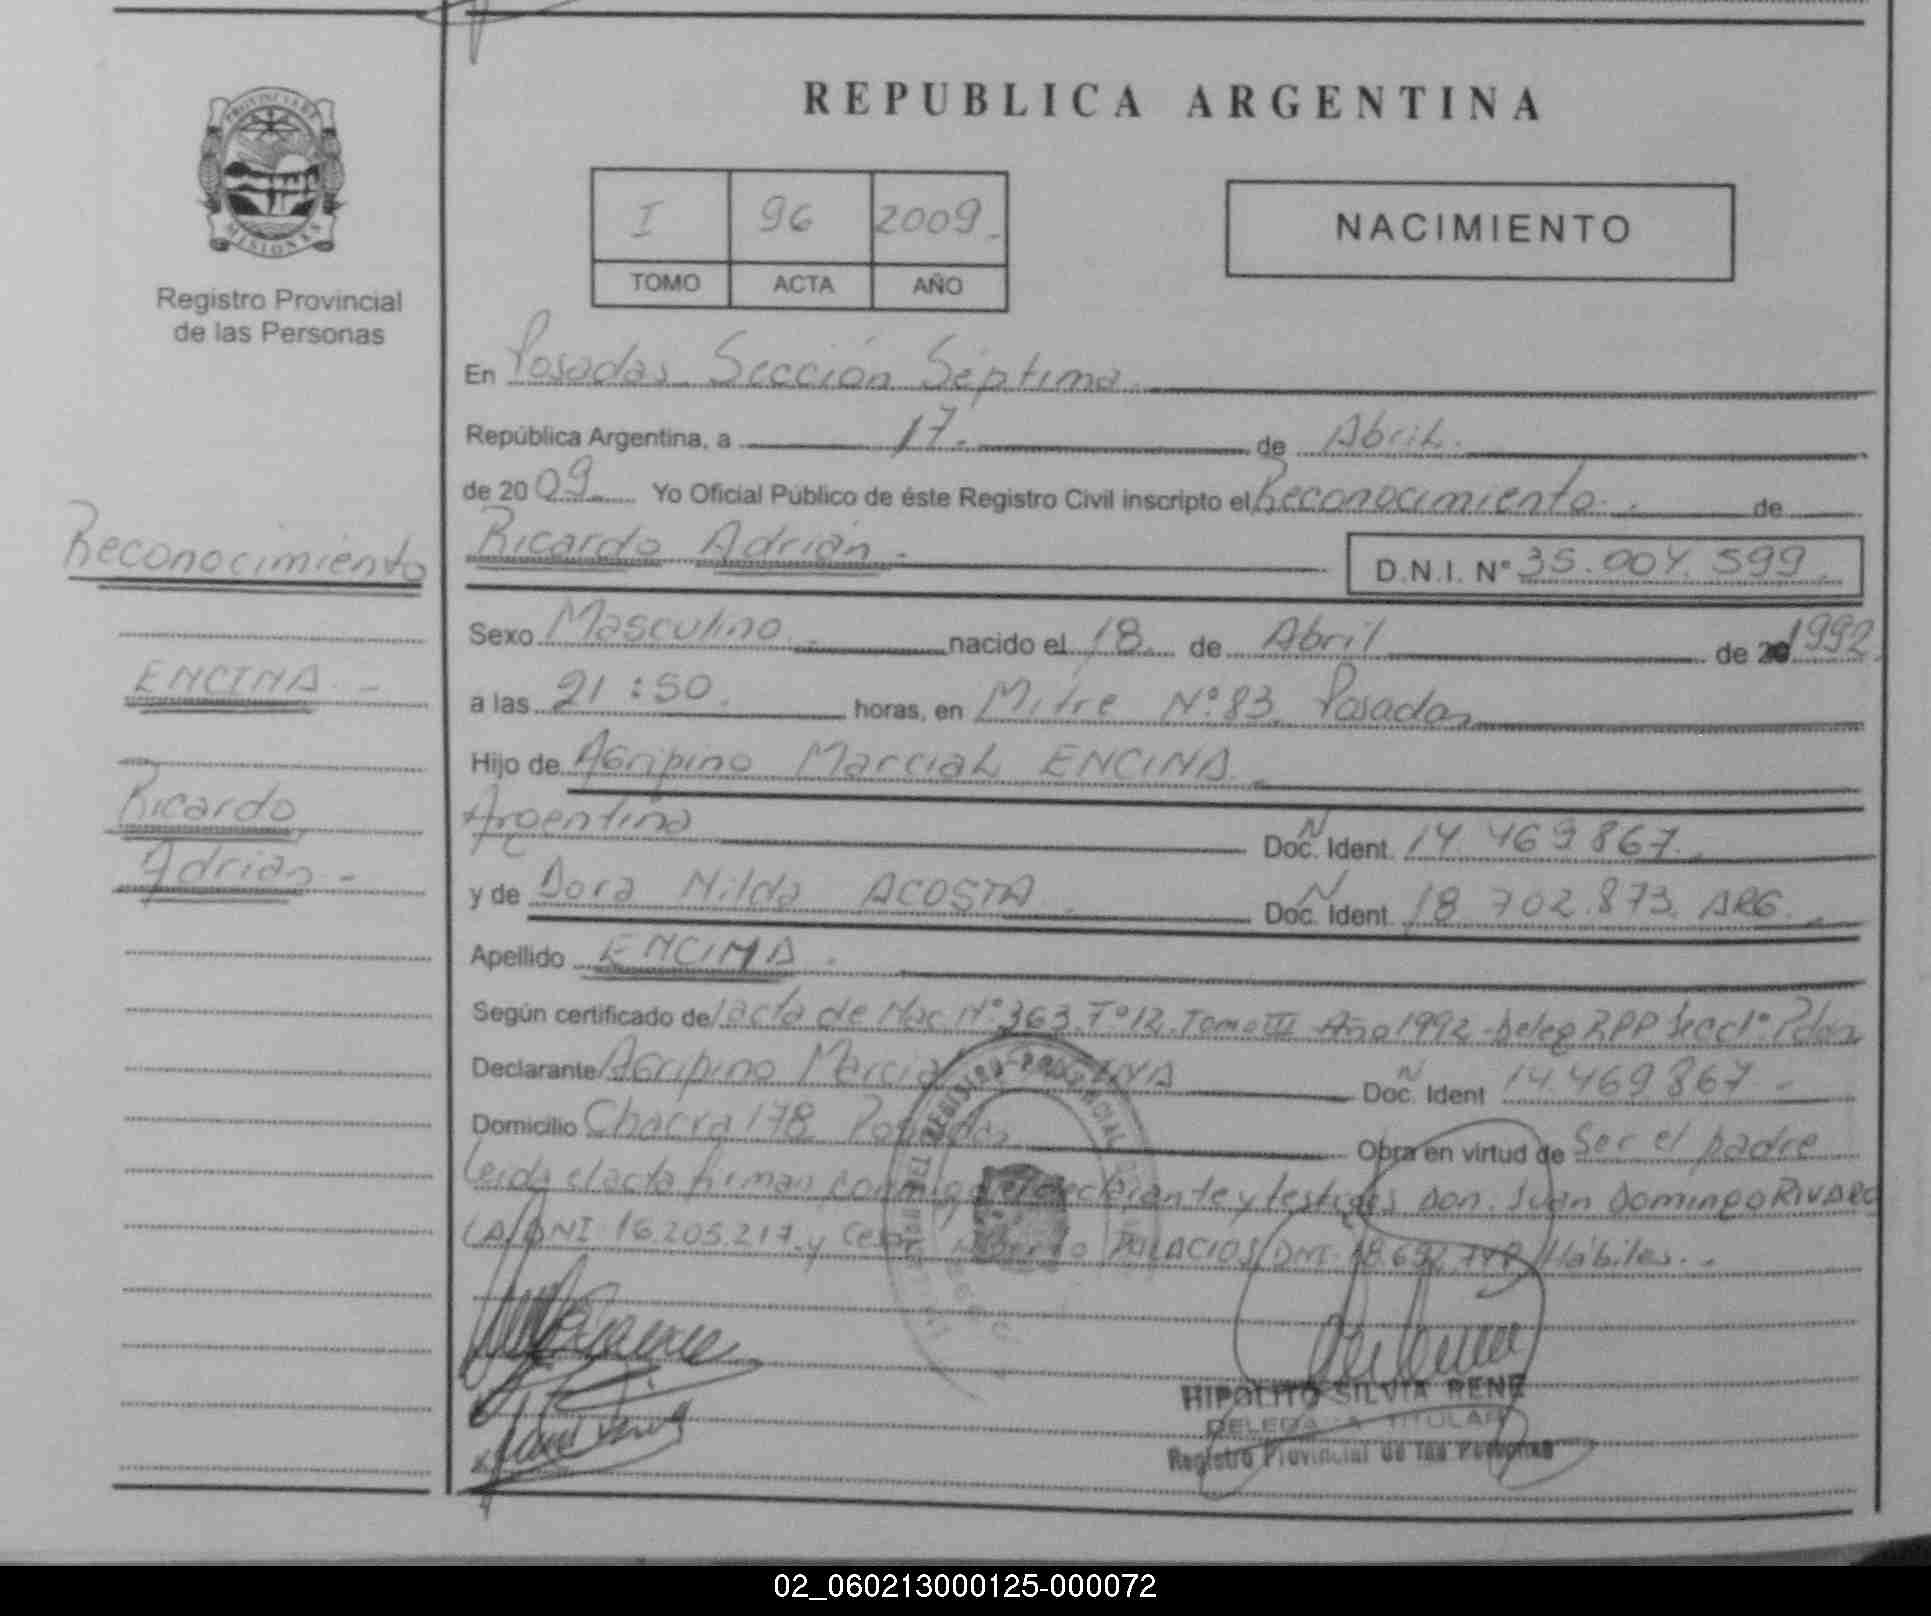 REPUBLICA ARGENTINA
PROVINCIA DE
MISIONES
Registro Provincial
de las Personas
I 96 2009.-
TOMO ACTA AÑO
NACIMIENTO
En Posadas Sección Séptima.
República Argentina, a 17. de Abril.
de 2009. Yo Oficial Público de éste Registro Civil inscripto el Reconocimiento. de
Ricardo Adrián.- D.N.I. N° 35.004.599.
Sexo Masculino.- nacido el 18. de Abril de 1992.
a las 21:50. horas, en Mitre N°83. Posadas
Hijo de Agripino Marcial ENCINA.
Argentina Doc. Ident. N 14.469.867.
y de Dora Nilda ACOSTA. Doc. Ident. N 18.702.873. ARG.
Apellido ENCINA.
Según certificado de/acta de Nac N°363.T°12.Tomo III Año 1992-Deleg RPP Secc 1° Pdas
Declarante Agripino Marcial Doc. Ident N 14.469.867.-
Domicilio Chacra 178 Posadas Obra en virtud de Ser el padre
Leida el acta firman conmigo el declarante y testigos Don. Juan Domingo RIVARO
LA/DNI 16.205.217.y Cesar PALACIOS/DNI. /Hábiles.-
Reconocimiento
ENCINA.-
Ricardo
Adrian-
DEL REGISTRO PROVINCIAL
HIPOLITO SILVIA RENE
DELEGADA TITULAR
Registro Provincial de las Personas
02_060213000125-000072